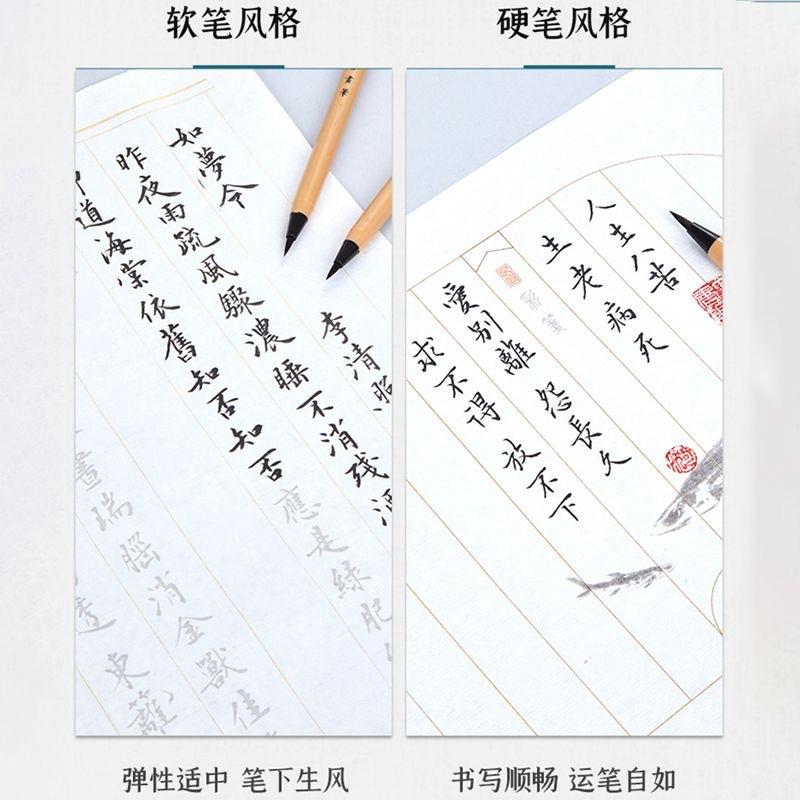 软笔风格
硬笔风格
如夢令 李清照
昨夜雨疏風驟濃睡不消残
道海棠依舊知否知否應是緑肥
晝瑞腦消金獸佳
透東籬
人生八苦
生老病死
彩箋
愛別離 怨長久
求不得 放不下
弹性适中 笔下生风
书写顺畅 运笔自如